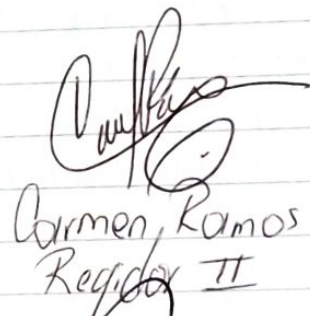 Carmen Ramos
Regidor II